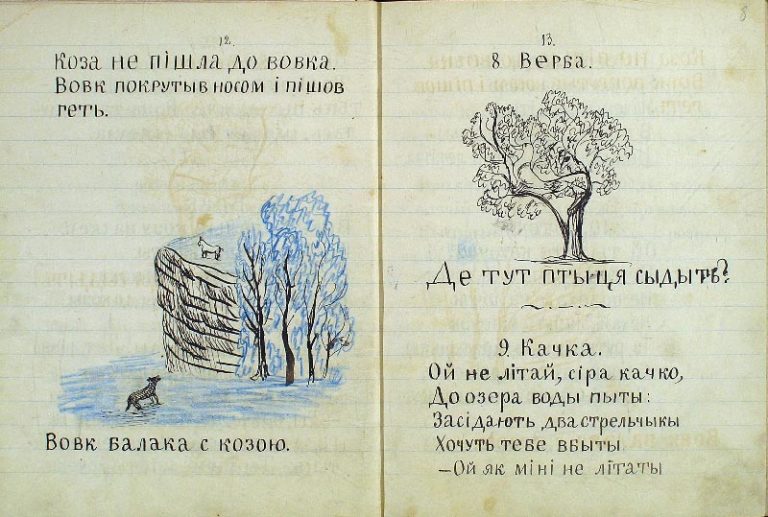 12.
Коза не пішла до вовка.
Вовк покрутыв носом і пішов
геть.
Вовк балака с козою.
8
13.
8 Верба.
Де тут птыця сыдыть?
9 Качка.
Ой не літай, сіра качко,
До озера воды пыты:
Засідають два стрельчыкы
Хочуть тебе вбыты.
—Ой як міні не літаты